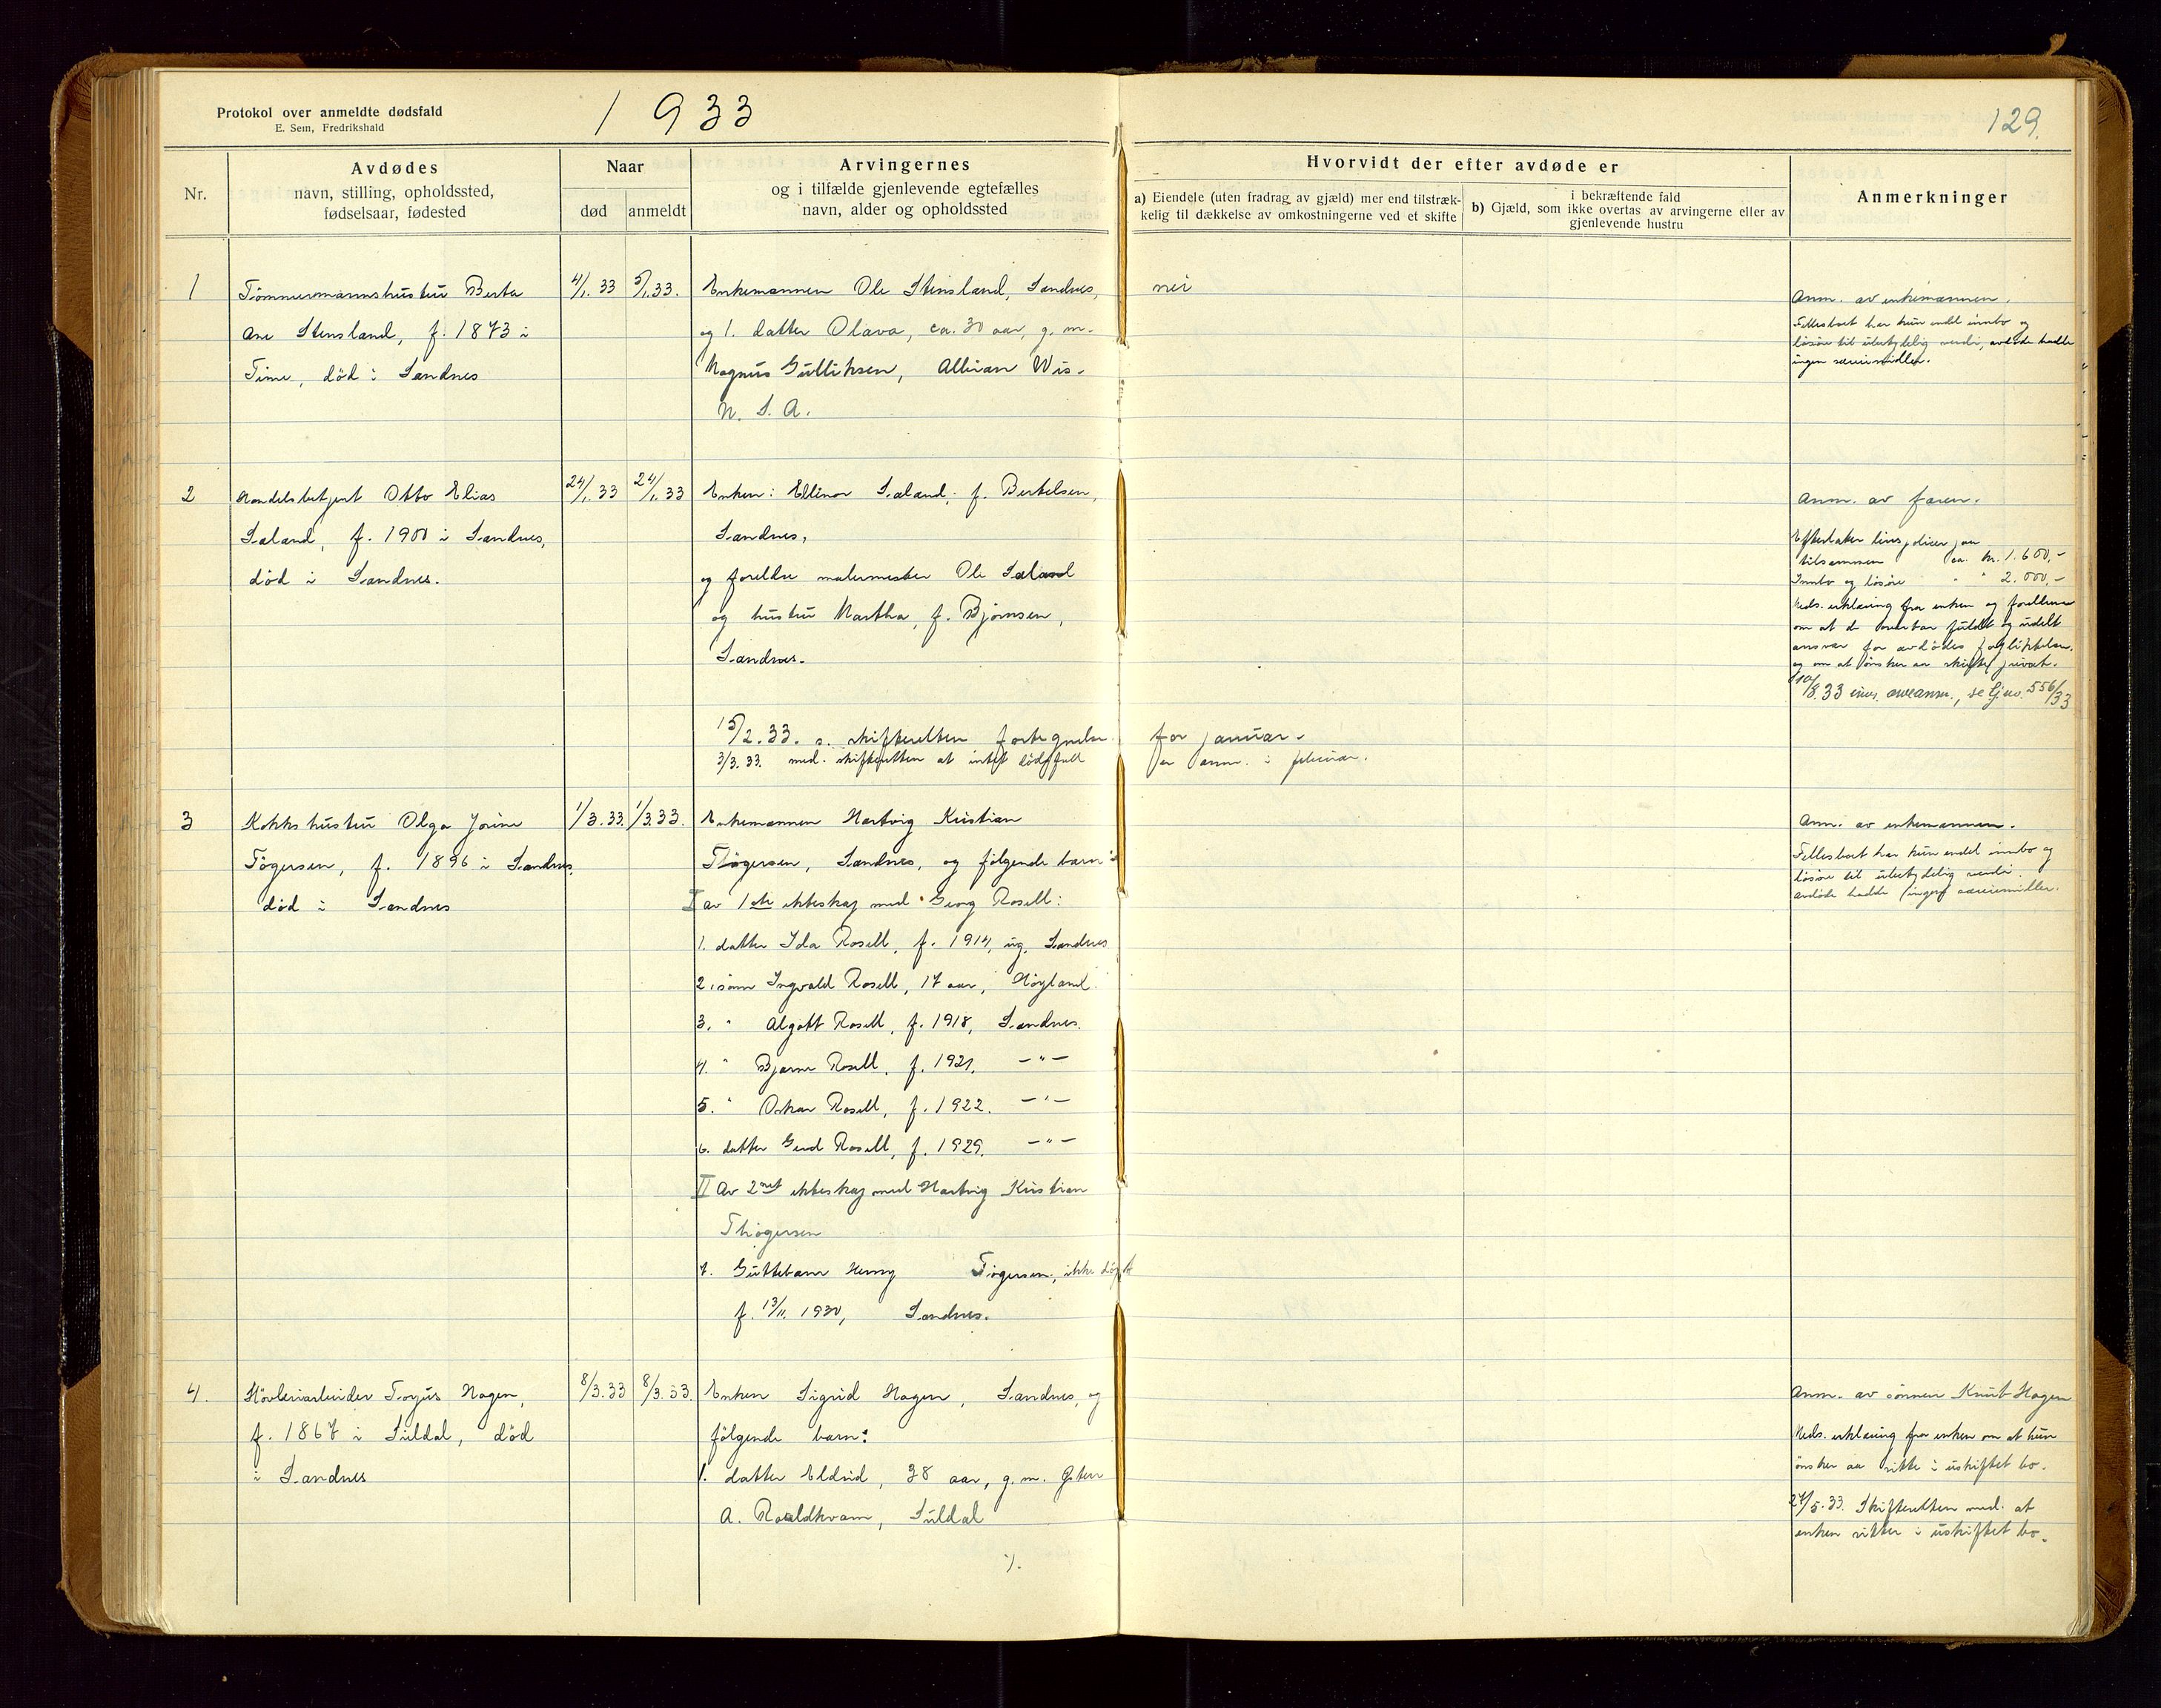 Protokol over anmeldte dødsfald
E. Sem, Fredrikshald
1933
129.
Nr.
Avdødes
navn, stilling, opholdssted,
fødselsaar, fødested
Naar
død
anmeldt
Arvingernes
og i tilfælde gjenlevende egtefælles
navn, alder og opholdssted
Hvorvidt der efter avdøde er
a) Eiendele (uten fradrag av gjæld) mer end tilstræk-
kelig til dækkelse av omkostningerne ved et skifte
i bekræftende fald
b) Gjæld, som ikke overtas av arvingerne eller av
gjenlevende hustru
Anmerkninger
1
Tömmermannshustru Berta
Ane Stensland, f. 1873 i
Time, död i Sandnes
4/1. 33
5/1. 33.
Enkemannen Ole Stensland, Sandnes,
og 1. datter Olava, ca. 30 aar, g. m.
Magnus Gulliksen, Albian Wis-
N. S. A.
nei
Anm. av enkemannen.
Fellesboet har kun endel innbo og
lösöre til ubetydelig verdi, avdöde hadde
ingen særeiemidler.
2
Handelsbetjent Otto Elias
Saland, f. 1900 i Sandnes,
död i Sandnes.
24/1. 33
24/1. 33
Enken: Ellinor Saland, f. Bertelsen,
Sandnes,
og foreldre malermester Ole Saland
og hustru Martha, f. Björnsen,
Sandnes.
Anm. av faren.
Efterlater livspoliser paa
tilsammen ca. kr. 1.600,-
Innbo og lösöre " " 2.000,-
Meds. erklæring fra enken og foreldrene
om at de overtar fuldt og udelt
ansvar for avdödes forpliktelser
og om at önsker aa skifte privat.
10/8.33 inns. arveanm., se Gjno. 556/33
15/2. 33. s. skifteretten fortegnelse for januar.
3/3. 33. med. skifteretten at intet dödsfall er anm. i februar.
3
Kokkshustru Olga Jorine
Tögersen, f. 1896 i Sandnes,
död i Sandnes
1/3. 33.
1/3. 33.
Enkemannen Hartvig Kristian
Thögersen, Sandnes, og fölgende barn:
I av 1ste ekteskap med Georg Rosell:
1. datter Ida Rosell, f. 1914, ug. Sandnes
2. sönn Ingvald Rosell, 17 aar, Höyland.
3. " Algott Rosell, f. 1918, Sandnes.
4. " Bjarne Rosell, f. 1921. -"-
5. " Oskar Rosell, f. 1922. -"-
6. datter Gerd Rosell, f. 1929. -"-
II Av 2net ekteskap med Hartvig Kristian
Thögersen
7. Guttebarn Henry Tögersen, ikke döpt
f. 13/11. 1930, Sandnes.
Anm. av enkemannen.
Fellesboet har kun endel innbo og
lösöre til ubetydelig verdi.
avdöde hadde ingen særeiemidler.
4.
Hövleriarbeider Torjus Hagen,
f. 1867 i Suldal, död
i Sandnes
8/3. 33
8/3. 33.
Enken Sigrid Hagen, Sandnes, og
fölgende barn:
1. datter Eldrid, 38 aar, g. m. Östen
A. Roaldkvam, Suldal
Anm. av sönnen Knut Hagen
Meds. erklæring fra enken om at hun
önsker aa sitte i uskiftet bo.
27/5. 33. Skifteretten med. at
enken sitter i uskiftet bo.